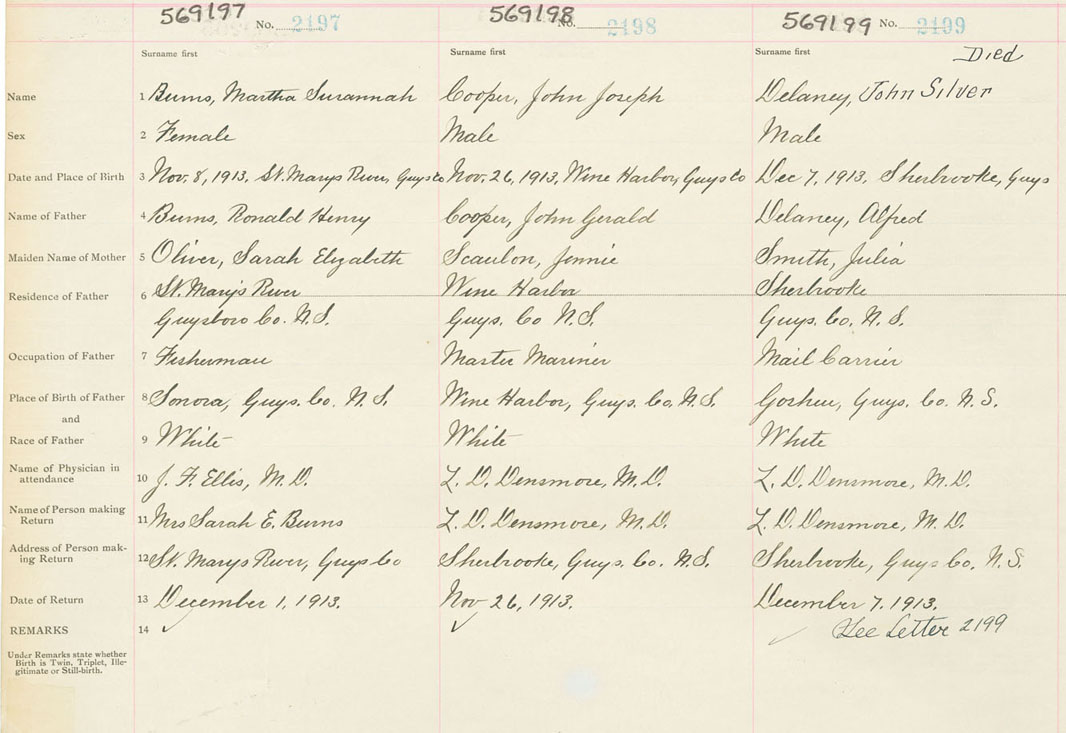 569197 No. 2197 569198 No. 2198 569199 No. 2199
Surname first Surname first Surname first Died
Name 1 Burns, Martha Susannah Cooper, John Joseph Delaney, John Silver
Sex 2 Female Male Male
Date and Place of Birth 3 Nov. 8, 1913, St. Marys River, Guys Co Nov. 26, 1913, Wine Harbor, Guys Co Dec 7, 1913, Sherbrooke, Guys
Name of Father 4 Burns, Ronald Henry Cooper, John Gerald Delaney, Alfred
Maiden Name of Mother 5 Oliver, Sarah Elizabeth Scanlon, Jennie Smith, Julia
Residence of Father 6 St. Marys River Wine Harbor Sherbrooke
Guysboro Co. N.S. Guys. Co N.S. Guys. Co. N.S.
Occupation of Father 7 Fisherman Master Mariner Mail Carrier
Place of Birth of Father 8 Sonora, Guys. Co. N.S. Wine Harbor, Guys. Co. N.S. Goshen, Guys. Co. N.S.
and
Race of Father 9 White White White
Name of Physician in
attendance 10 J. F. Ellis, M.D. L. D. Densmore, M.D. L. D. Densmore, M.D.
Name of Person making
Return 11 Mrs Sarah E. Burns L. D. Densmore, M.D. L. D. Densmore, M.D.
Address of Person mak-
ing Return 12 St. Marys River, Guys Co Sherbrooke, Guys. Co. N.S. Sherbrooke, Guys Co. N.S.
Date of Return 13 December 1, 1913. Nov 26, 1913. December 7, 1913.
REMARKS 14 See Letter 2199
Under Remarks state whether
Birth is Twin, Triplet, Ille-
gitimate or Still-birth.